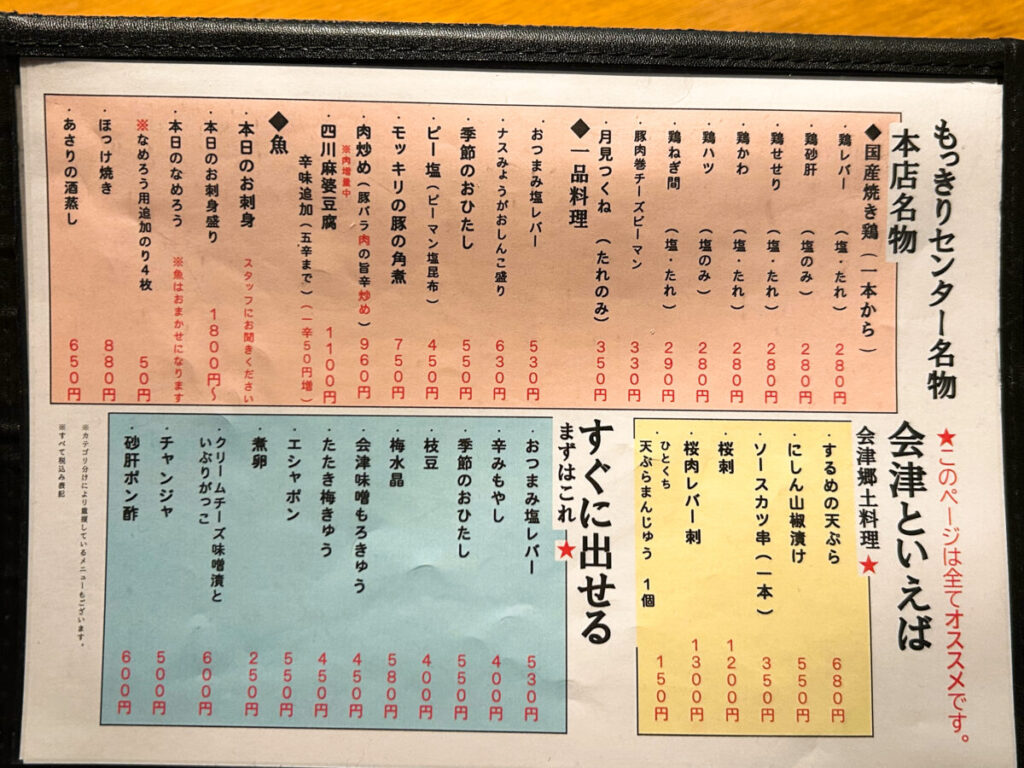 もっきりセンター名物
本店名物
◆国産焼き鶏（一本から）
・鶏レバー（塩・たれ）280円
・鶏砂肝（塩のみ）280円
・鶏せせり（塩・たれ）280円
・鶏かわ（塩・たれ）280円
・鶏ハツ（塩のみ）280円
・鶏ねぎ間（塩・たれ）290円
・豚肉巻チーズピーマン 330円
・月見つくね（たれのみ）350円
◆一品料理
・おつまみ塩レバー 530円
・ナスみょうがおしんこ盛り 630円
・季節のおひたし 550円
・ピー塩（ピーマン塩昆布）450円
・モッキリの豚の角煮 750円
・肉炒め（豚バラ肉の旨辛炒め）960円
※肉増量中
・四川麻婆豆腐 1100円
辛味追加（五辛まで）（一辛50円増）
◆魚
・本日のお刺身 スタッフにお聞きください
・本日のお刺身盛り 1800円〜
・本日のなめろう ※魚はおまかせになります
※なめろう用追加のり4枚 50円
・ほっけ焼き 880円
・あさりの酒蒸し 650円
★このページは全てオススメです。
会津といえば
会津郷土料理★
・するめの天ぷら 680円
・にしん山椒漬け 550円
・ソースカツ串（一本）350円
・桜刺 1200円
・桜肉レバー刺 1300円
・ひとくち
天ぷらまんじゅう 1個 150円
すぐに出せる
まずはこれ★
・おつまみ塩レバー 530円
・辛みもやし 400円
・季節のおひたし 550円
・枝豆 400円
・梅水晶 580円
・会津味噌もろきゅう 450円
・たたき梅きゅう 450円
・エシャポン 550円
・煮卵 250円
・クリームチーズ味噌漬と
いぶりがっこ 600円
・チャンジャ 500円
・砂肝ポン酢 600円
※カテゴリ分けにより重複しているメニューもございます。
※すべて税込み表記